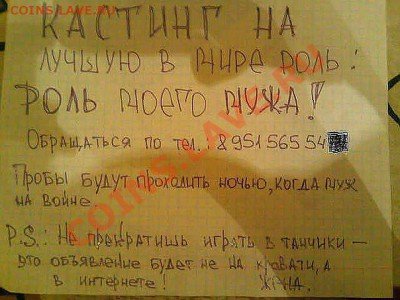 COINS.LAVE.RU
КАСТИНГ НА
ЛУЧШУЮ В МИРЕ РОЛЬ:
РОЛЬ МОЕГО МУЖА!
ОБРАЩАТЬСЯ ПО ТЕЛ.: 8 951 565 54
ПРОБЫ БУДУТ ПРОХОДИТЬ НОЧЬЮ, КОГДА МУЖ
НА ВОЙНЕ.
P.S.: НЕ ПРЕКРАТИШЬ ИГРАТЬ В ТАНЧИКИ —
ЭТО ОБЪЯВЛЕНИЕ БУДЕТ НЕ НА КРОВАТИ, А
В ИНТЕРНЕТЕ! ЖЕНА.
COINS.LAVE.RU